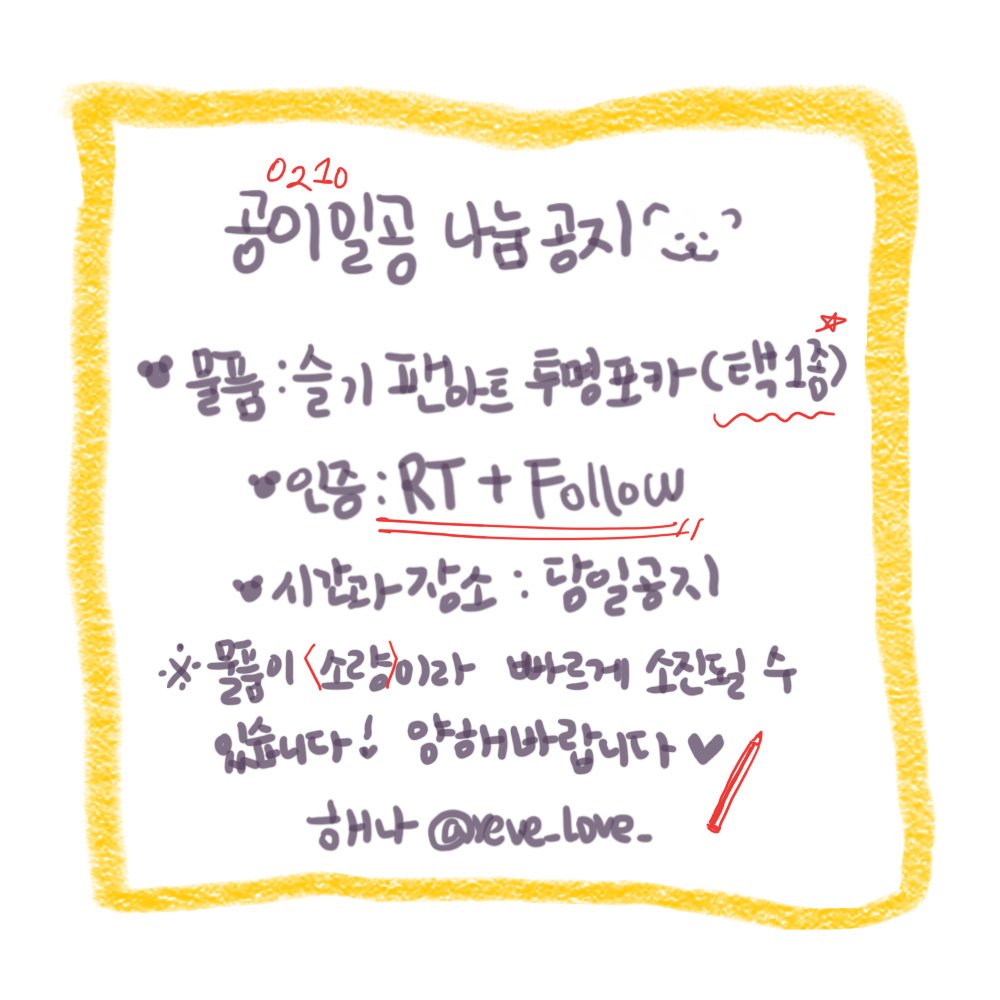 0210
공이일공 나눔 공지
물품 : 슬기 팬아트 투명포카 (택1종)
인증 : RT + Follow
시간과 장소 : 당일공지
※ 물품이 <소량>이라 빠르게 소진될 수
있습니다! 양해바랍니다 ♥
해나 @reve_love_